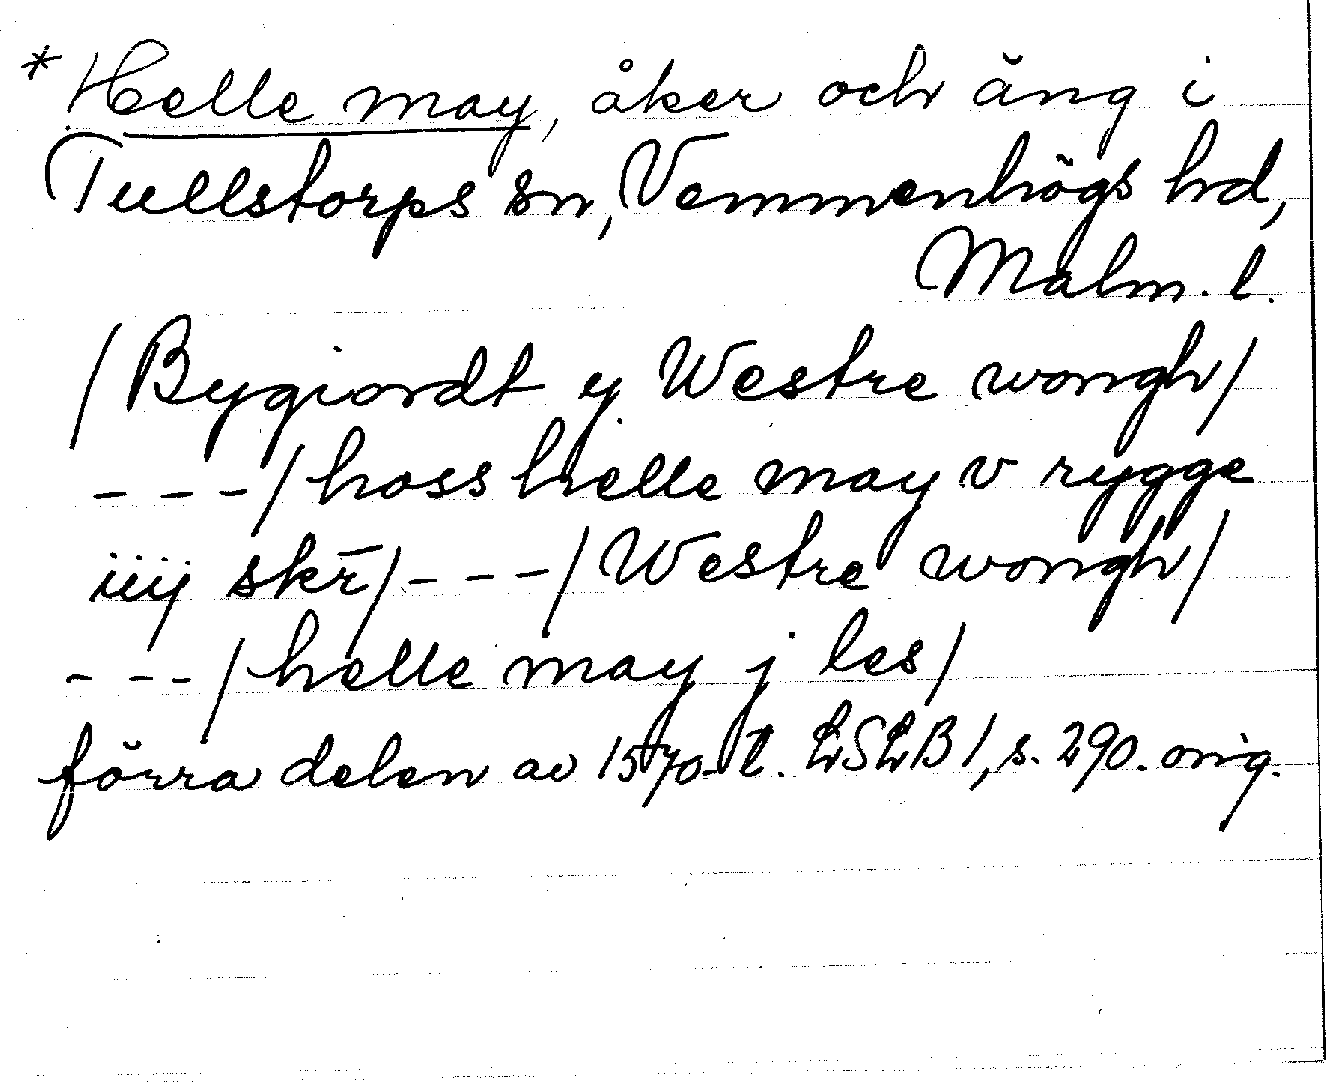 *Helle may, åker och äng i
Tullstorps sn, Vemmenhögs hd,
Malm. l.
/Bygiordt y Westre wongh/
---/hoss helle may v rygge
iiij skr̄/---/Westre wongh/
---/helle may j les/
förra delen av 1570-t. LSLB 1, s. 290. orig.